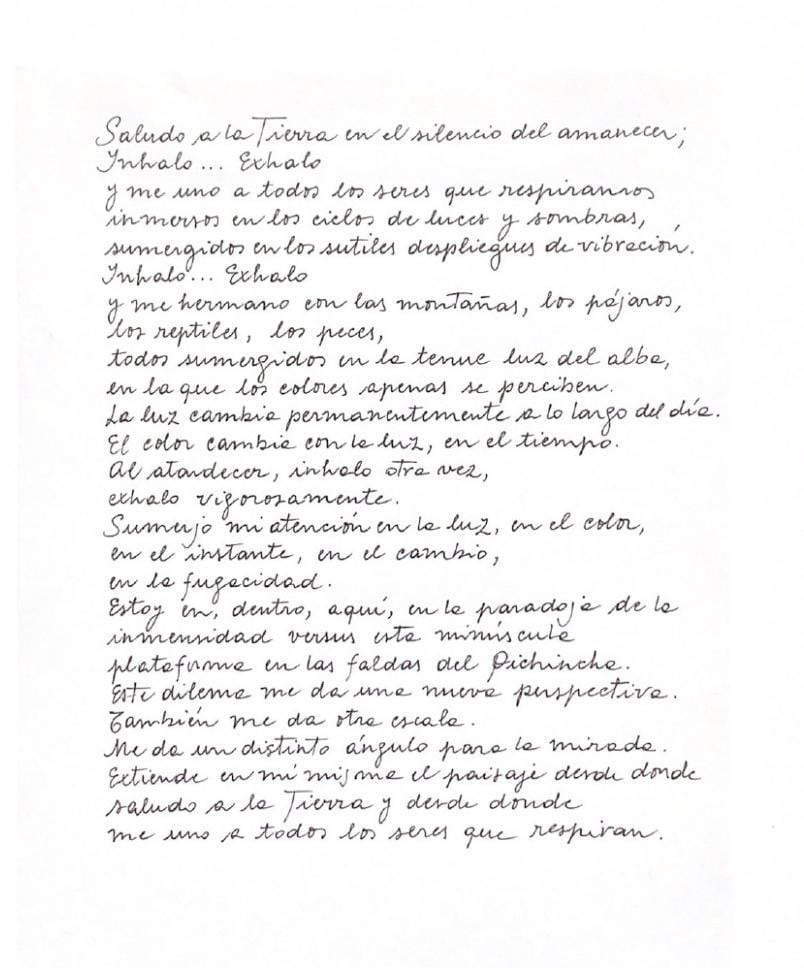 Saludo a la Tierra en el silencio del amanecer;
Inhalo... Exhalo
y me uno a todos los seres que respiramos
inmersos en los ciclos de luces y sombras,
sumergidos en los sutiles despliegues de vibración.
Inhalo... Exhalo
y me hermano con las montañas, los pájaros,
los reptiles, los peces,
todos sumergidos en la tenue luz del alba,
en la que los colores apenas se perciben.
La luz cambia permanentemente a lo largo del día.
El color cambia con la luz, en el tiempo.
Al atardecer, inhalo otra vez,
exhalo vigorosamente.
Sumerjo mi atención en la luz, en el color,
en el instante, en el cambio,
en la fugacidad.
Estoy en, dentro, aquí, en la paradoja de la
inmensidad versus esta minúscula
plataforma en las faldas del Pichincha.
Este dilema me da una nueva perspectiva.
También me da otra escala.
Me da un distinto ángulo para la mirada.
Extiende en mí misma el paisaje desde donde
saludo a la Tierra y desde donde
me uno a todos los seres que respiran.